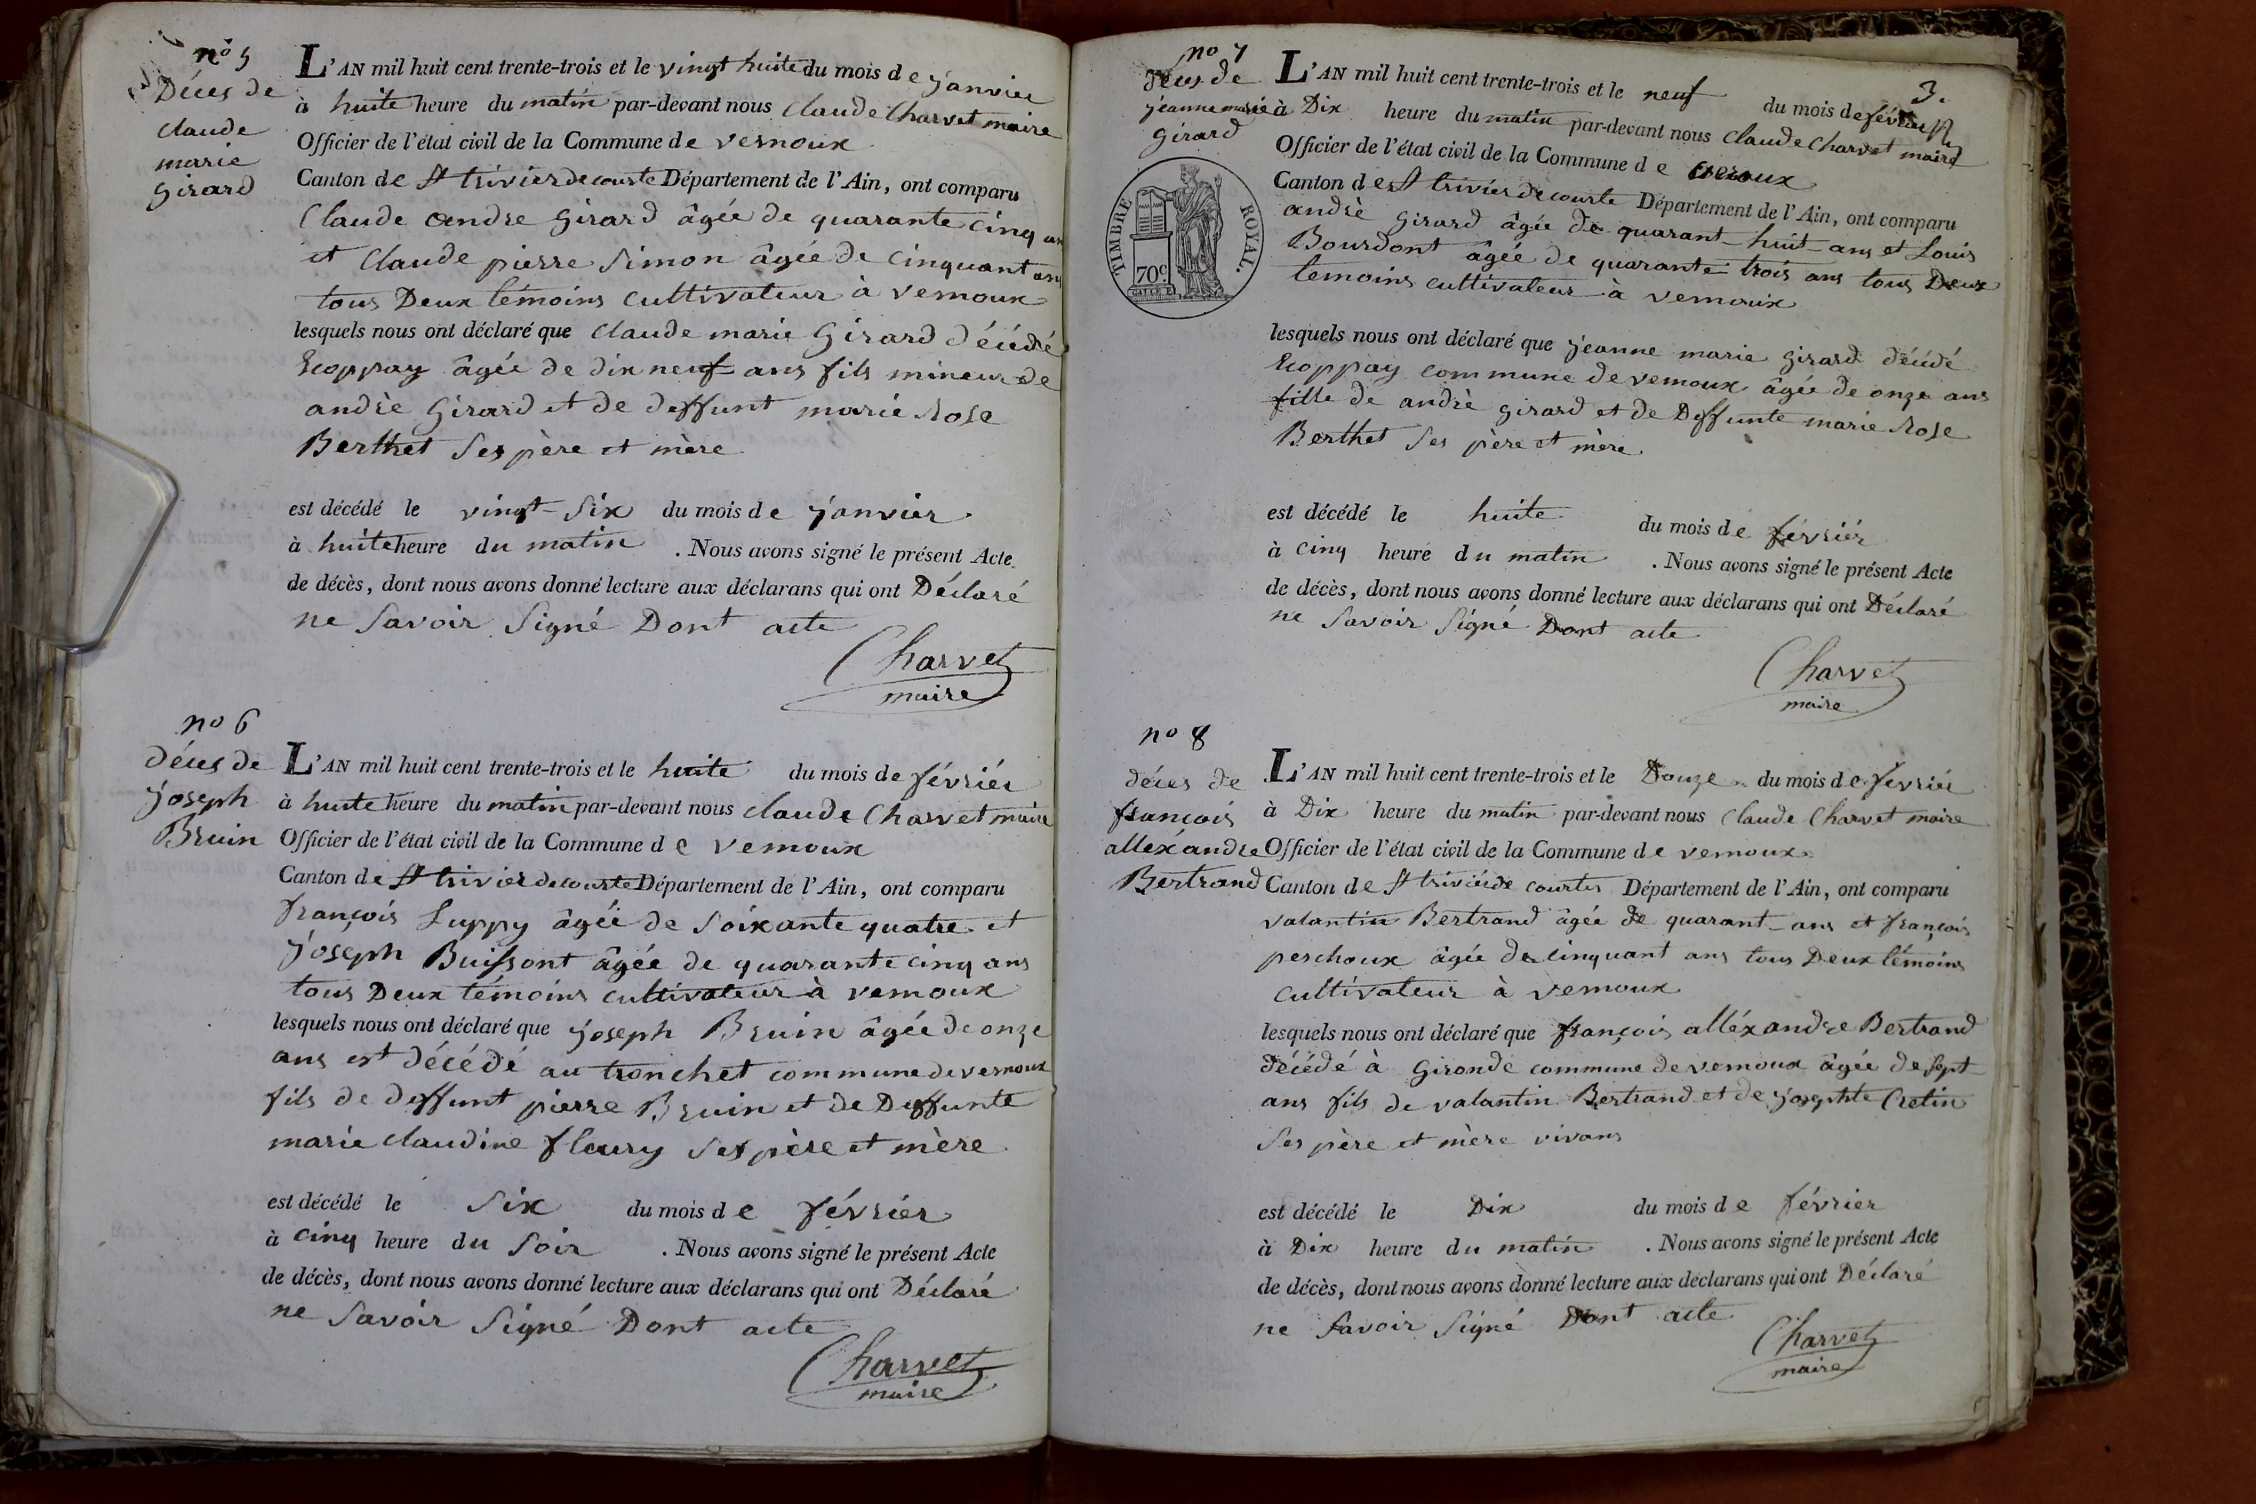 no 5
Décès de
claude
marie
Girard
L'AN mil huit cent trente-trois et le vingt huite du mois de janvier
à huite heure du matin par-devant nous claude Charvet maire
Officier de l'état civil de la Commune de vernoux
Canton de St trivier de courte Département de l'Ain, ont comparu
Claude andre Girard âgée de quarante cinq ans
et Claude pierre Simon âgée de Cinquant ans
tous Deux témoins Cultivateur à vernoux
lesquels nous ont déclaré que claude marie Girard décédé
Ecoppay âgée de dix neuf ans fils mineur de
andrè Girard et de deffunt marie Rose
Berthet Ses père et mère
est décédé le vingt-Six du mois de janvier
à huite heure du matin . Nous avons signé le présent Acte
de décès, dont nous avons donné lecture aux déclarans qui ont Déclaré
ne Savoir Signé Dont acte
Charvet
maire
no 6
décès de
joseph
Bruin
L'AN mil huit cent trente-trois et le huite du mois de février
à huite heure du matin par-devant nous claude Charvet maire
Officier de l'état civil de la Commune de vernoux
Canton de St trivier de courte Département de l'Ain, ont comparu
françois Luppy âgée de Soixante quatre et
joseph Buissont âgée de quarante cinq ans
tous Deux témoins cultivateur à vernoux
lesquels nous ont déclaré que joseph Bruin âgée de onze
ans est décédé au tronchet commune de vernoux
fils de deffunt pierre Bruin et de Deffunte
marie claudine fleury Ses père et mère
est décédé le Six du mois de février
à cinq heure du Soir . Nous avons signé le présent Acte
de décès, dont nous avons donné lecture aux déclarans qui ont Déclaré
ne Savoir Signé Dont acte
Charvet
maire
3.
no 7
décès de
jeanne marie
girard
TIMBRE ROYAL.
70c
L'AN mil huit cent trente-trois et le neuf du mois de février
à Dix heure du matin par-devant nous claude Charvet maire
Officier de l'état civil de la Commune de vernoux
Canton de St trivier de courte Département de l'Ain, ont comparu
andrè girard âgée de quarant-huit ans et Louis
Bourdont âgée de quarante trois ans tous Deux
temoins cultivateur à vernoux
lesquels nous ont déclaré que jeanne marie girard décédé
Ecoppay commune de vernoux âgée de onze ans
fille de andrè girard et de Deffunte marie Rose
Berthet Ses père et mère
est décédé le huite du mois de février
à cinq heure du matin . Nous avons signé le présent Acte
de décès, dont nous avons donné lecture aux déclarans qui ont Déclaré
ne Savoir Signé Dont acte
Charvet
maire
no 8
décès de
françois
alléxandre
Bertrand
L'AN mil huit cent trente-trois et le Douze du mois de février
à Dix heure du matin par-devant nous Claude Charvet maire
Officier de l'état civil de la Commune de vernoux
Canton de St trivier de courtes Département de l'Ain, ont comparu
valantin Bertrand âgée de quarant ans et françois
perchoux âgée de cinquant ans tous Deux témoins
cultivateur à vernoux
lesquels nous ont déclaré que françois alléxandre Bertrand
décédé à Gironde commune de vernoux âgée de Sept
ans fils de valantin Bertrand et de josephte Cretin
Ses père et mère vivans
est décédé le Dix du mois de février
à Dix heure du matin . Nous avons signé le présent Acte
de décès, dont nous avons donné lecture aux déclarans qui ont Déclaré
ne Savoir Signé Dont acte
Charvet
maire